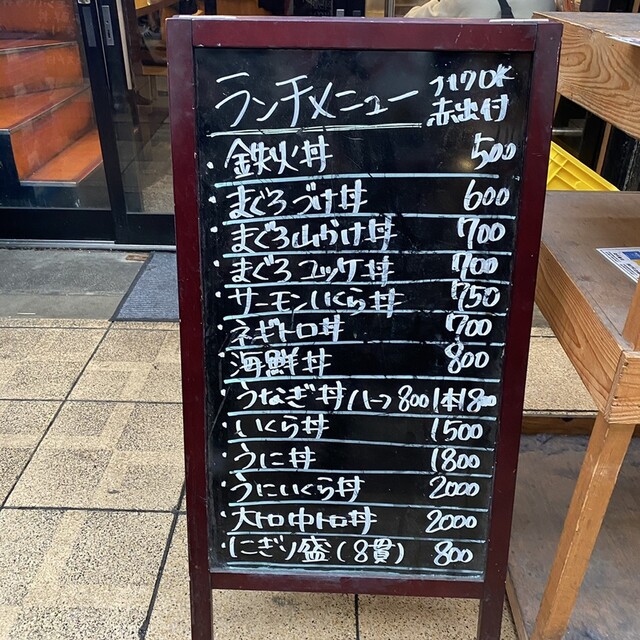 ランチメニュー テイクOK
赤出付
・鉄火丼 500
・まぐろづけ丼 600
・まぐろ山かけ丼 700
・まぐろユッケ丼 700
・サーモンいくら丼 750
・ネギトロ丼 700
・海鮮丼 800
・うなぎ丼 ハーフ 800 1本1800
・いくら丼 1500
・うに丼 1800
・うにいくら丼 2000
・大トロ中トロ丼 2000
・にぎり盛(8貫) 800